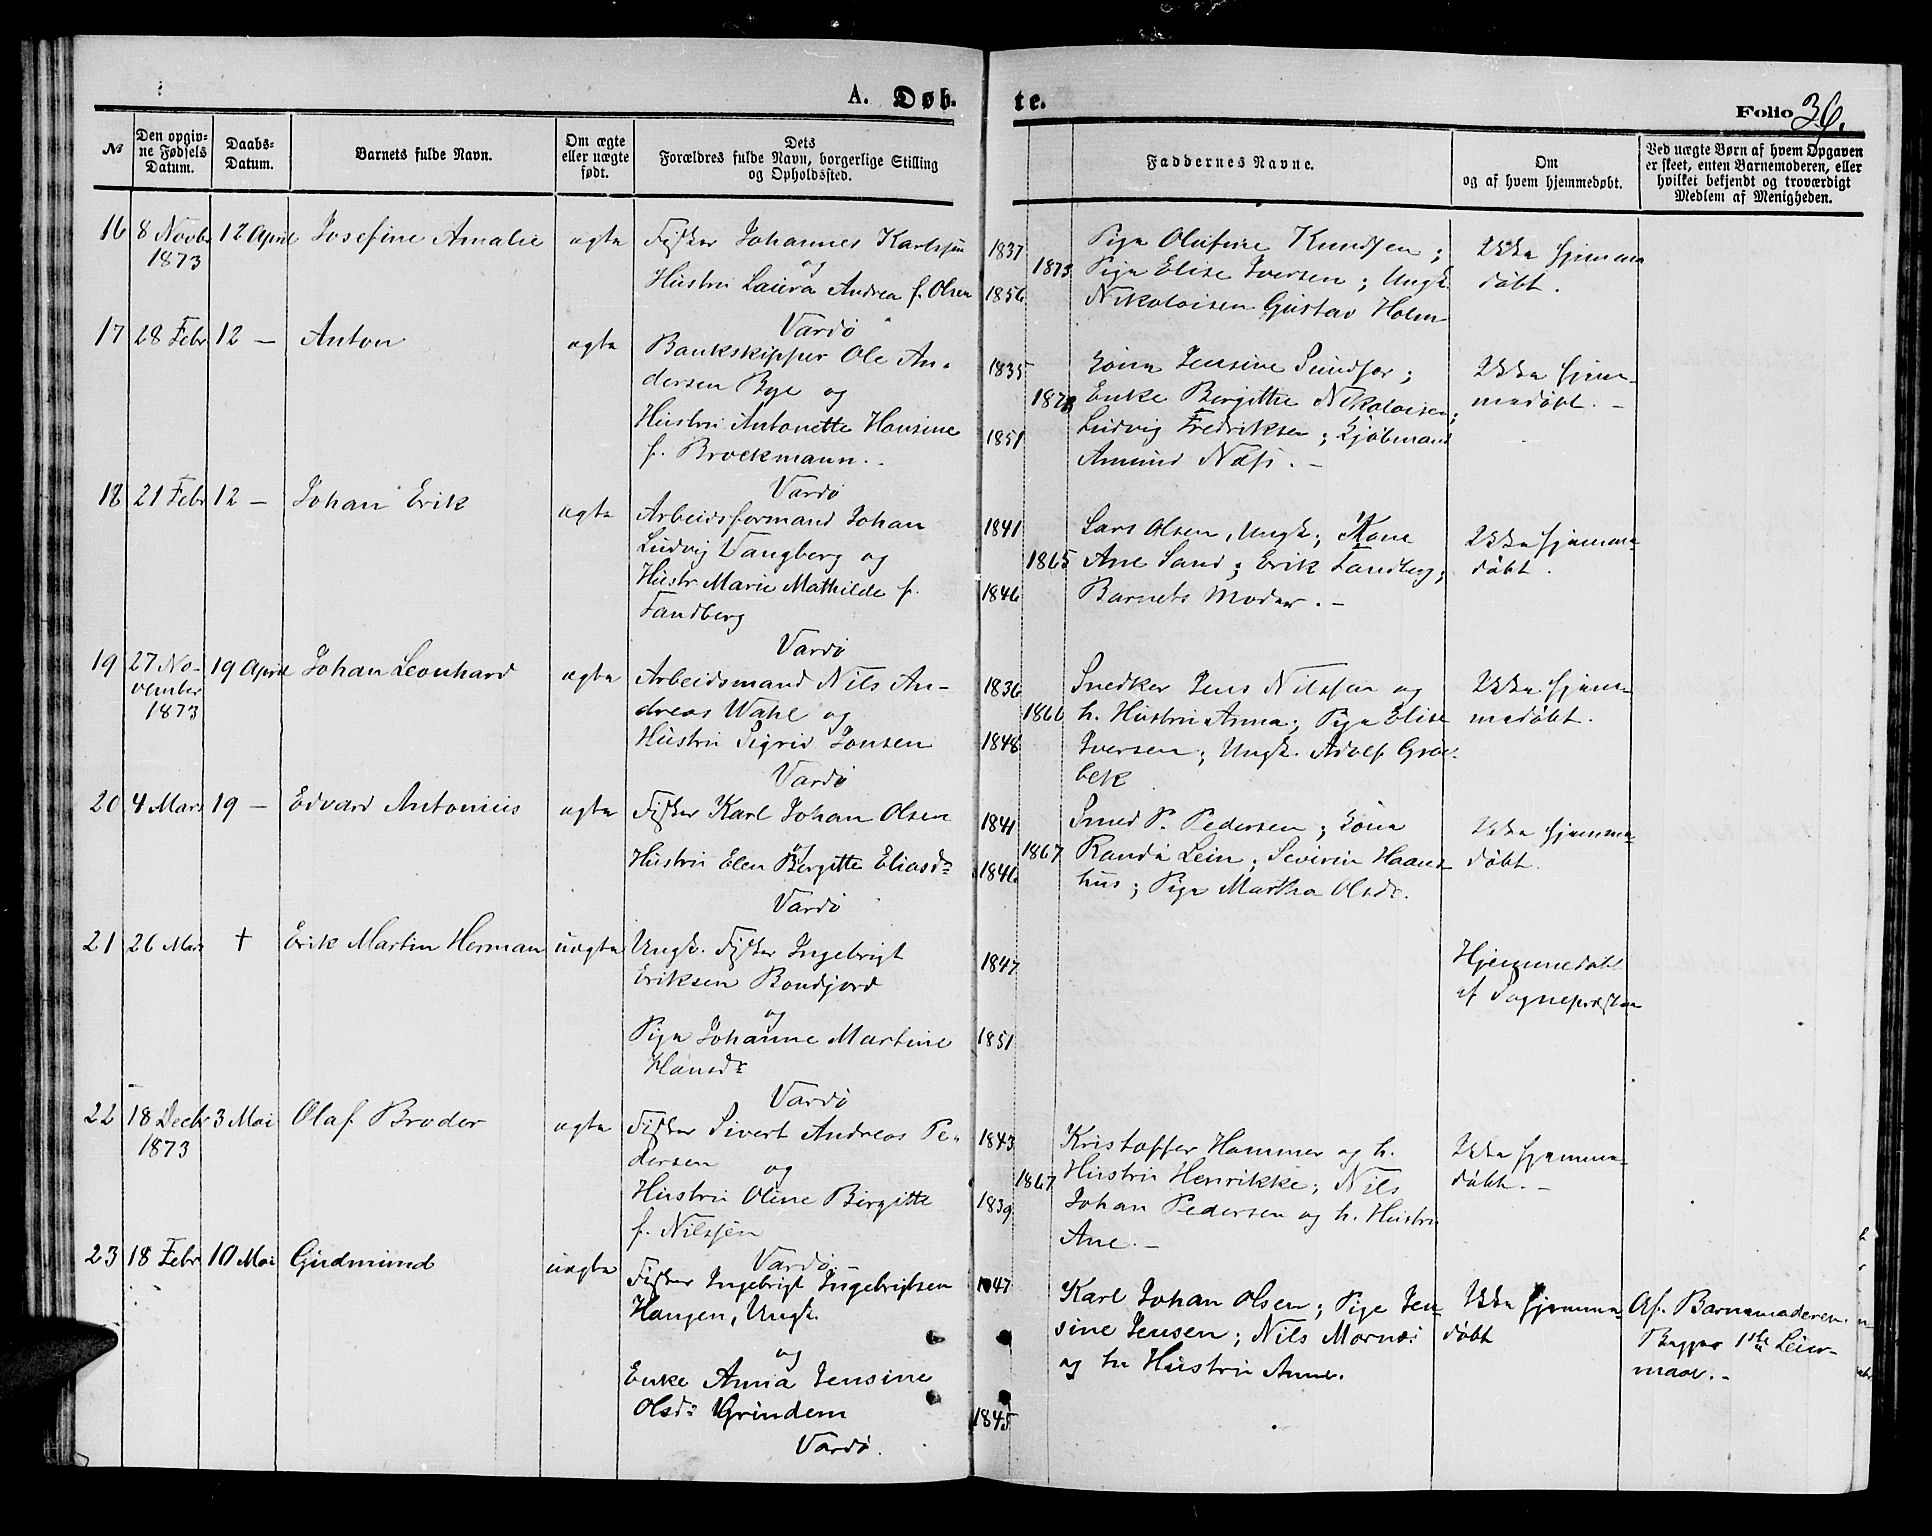 A. Døb-
te.
Folio 36.
№
Den opgiv-
ne Fødsels
Datum.
Daabs-
Datum.
Barnets fulde Navn.
Om ægte
eller uægte
født.
Dets
Forældres fulde Navn, borgerlige Stilling
og Opholdssted.
Faddernes Navne.
Om
og af hvem hjemmedøbt.
Ved uægte Børn af hvem Opgaven
er skeet, enten Barnemoderen, eller
hvilket bekjendt og troværdigt
Medlem af Menigheden.
16 8 Novbr 12 April Josefine Amalie ægte
1873
Fisker Johannes Karlssen 1837
og
Hustru Laura Andrea f. Olsen 1856
Vardø
1873
Pige Olufine Knudsen;
Pige Elise Iversen; Ungk.
Nikolaisen Gustav Holm
Ikke hjemme
døbt.
17 28 Febr 12 — Anton ægte
Bankskipper Ole An- 1835
dersen Bye og
Hustru Antonette Hansine 1851
f. Brockmann.
Vardø
1873
Kone Jensine Sundfær;
Enke Birgitte Nikolaisen;
Ludvig Fredriksen; Kjøbmand
Amund Næss. —
Ikke hjem-
medøbt. —
18 21 Febr 12 — Johan Erik ægte
Arbeidsformand Johan 1841
Ludvig Vangberg og
Hustr Marie Mathilde f. 1846
Landberg
Vardø
1865
Lars Olsen, Ungk; Kone
Ane Sand; Erik Landberg;
Barnets Moder. —
Ikke hjemme-
døbt.
19 27 No- 19 April Johan Leonhard ægte
vember
1873
Arbeidsmand Nils An- 1836
dreas Wahl og
Hustru Sigrid Jonsen 1848
Vardø
1866
Snedker Jens Nilssen og
h. Hustru Anna; Pige Elise
Iversen; Ungk. Adolf Grø-
bek
Ikke hjem-
medøbt.
20 4 Mars 19 — Edvard Antonius ægte
Fisker Karl Johan Olsen 1841
og
Hustru Elen Bergitte Eliasdr 1846
Vardø
1867
Smed P. Pedersen; Kone
Randa Lein; Severin Haans-
hus; Pige Martha Olsdr.
Ikke hjemme-
døbt.
21 26 Mars † Erik Martin Herman uægte
Ungk. Fisker Ingebrigt 1847
Eriksen Bondjord
og
Pige Johanne Martine 1851
Hansdr
Vardø
Hjemmedøbt
af Sognepresten
22 18 Decbr 3 Mai Olaf Broder ægte
1873
Fisker Sivert Andreas Pe- 1843
dersen og
Hustru Oline Birgitte 1839
f. Nilssen
Vardø —
1867
Kristoffer Hammer og h.
Hustru Henrikke; Nils
Johan Pedersen og h. Hustru
Ane. —
Ikke hjemme-
døbt. —
23 18 Febr 10 Mai Gudmund uægte
Fisker Ingebrigt Ingebrigtsen 1847
Haugen, Ungk.
og
Enke Anna Jensine
Olsdr Grindem 1845
Vardø.
Karl Johan Olsen; Pige Jen-
sine Jensen; Nils Mornæs
og h. Hustru Anne.
Ikke hjemme
døbt
Af Barnemoderen.
Begges 1ste Leier-
maal. —